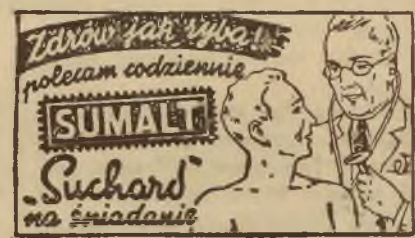 Zdrów jak ryba!
polecam codziennie
SUMALT
"Suchard"
na śniadanie